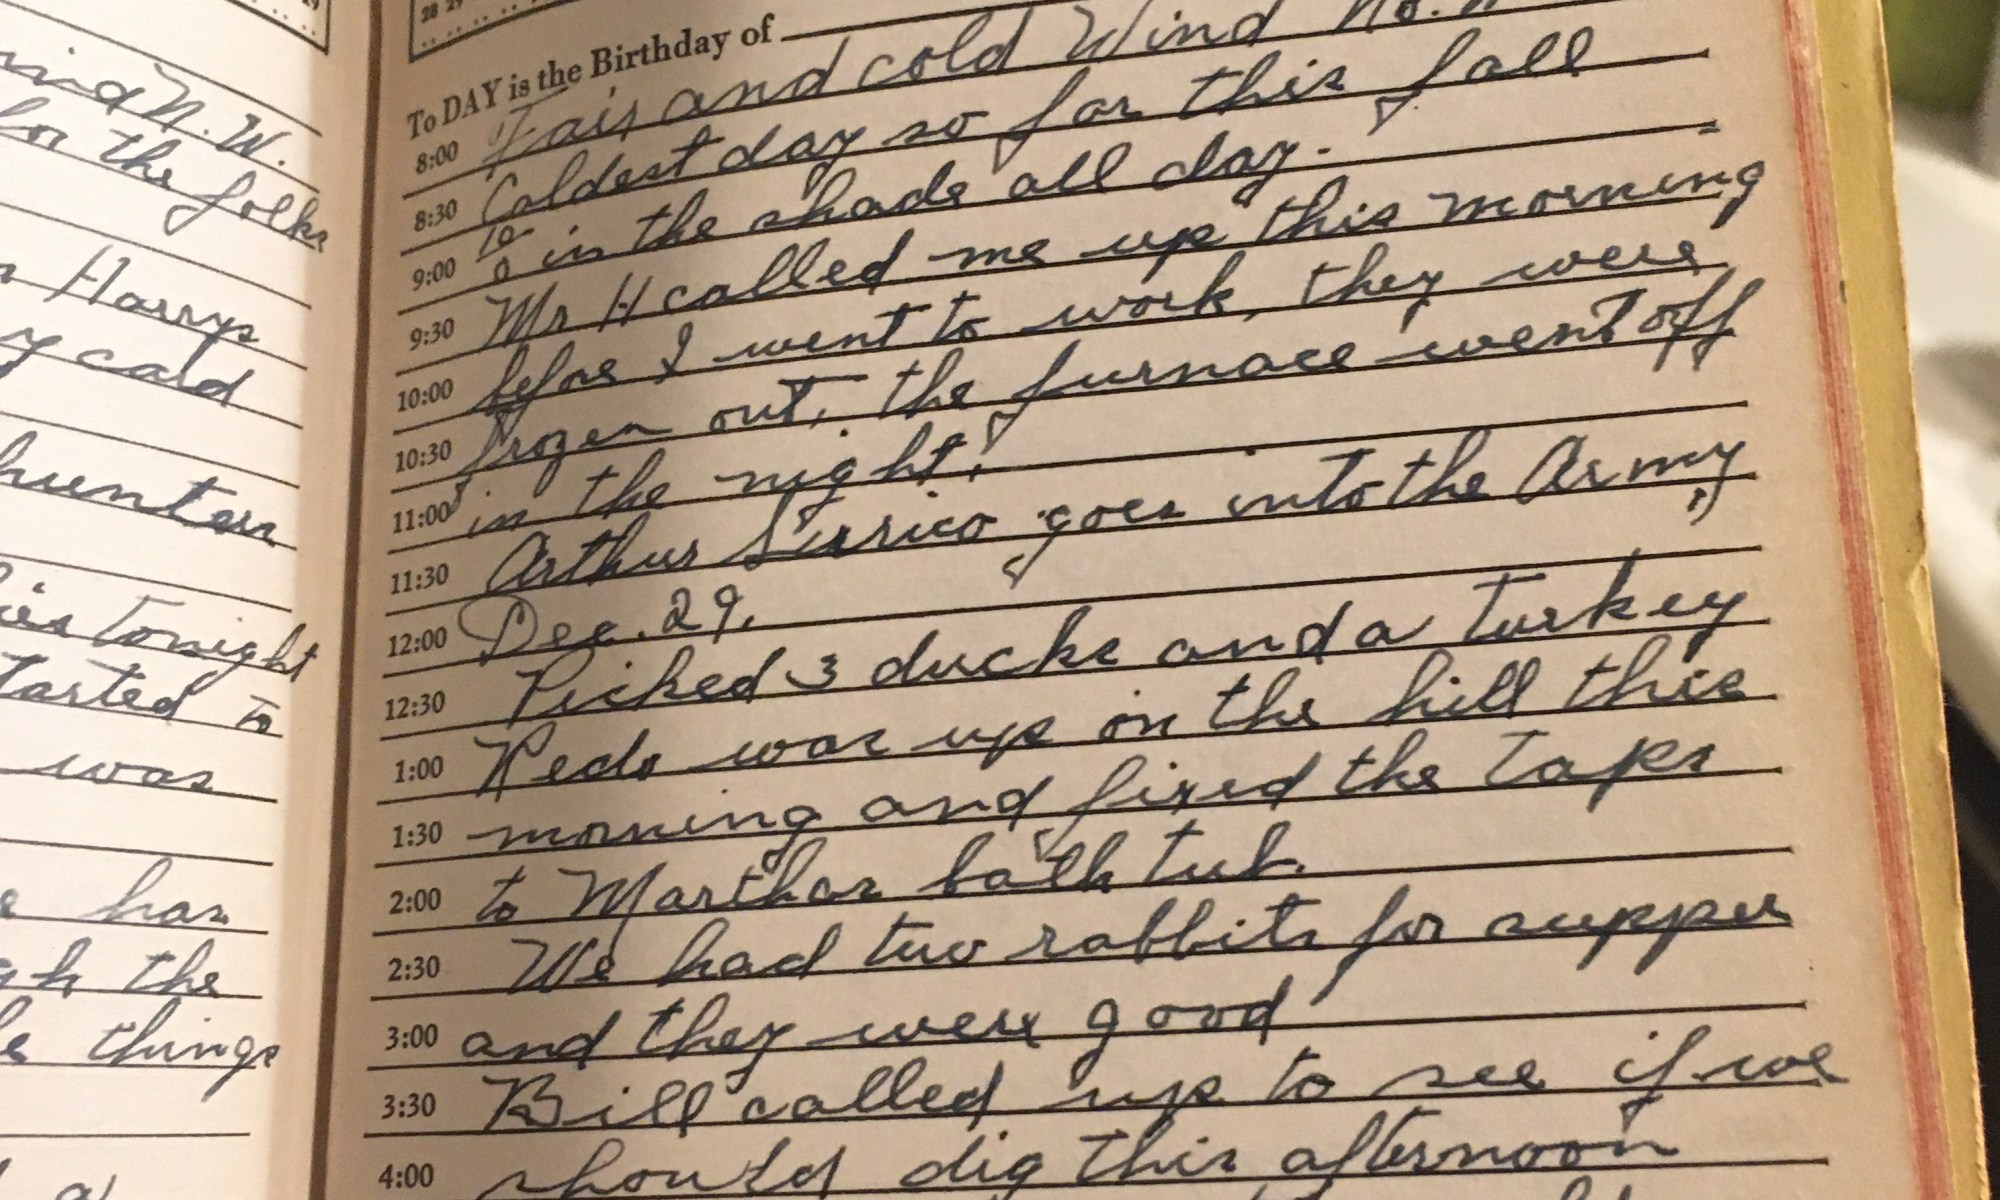 ind N.W.
for the folks
Harrys
y card
hunters
ies tonight
tarted to
was
has
the
things
a
29
28 29
To DAY is the Birthday of
8:00 Fair and cold Wind No.
8:30 Coldest day so far this fall
9:00 10/0 in the shade all day.
9:30 Mr H called me up this morning
10:00 before I went to work, they were
10:30 frozen out, the furnace went off
11:00 in the night.
11:30 Arthur Sirrico goes into the Army
12:00 Dec. 29.
12:30 Picked 3 ducks and a turkey
1:00 Redo was up on the hill this
1:30 morning and fixed the taps
2:00 to Marthas bath tub.
2:30 We had two rabbits for supper
3:00 and they were good
3:30 Bill called up to see if we
4:00 should dig this afternoon